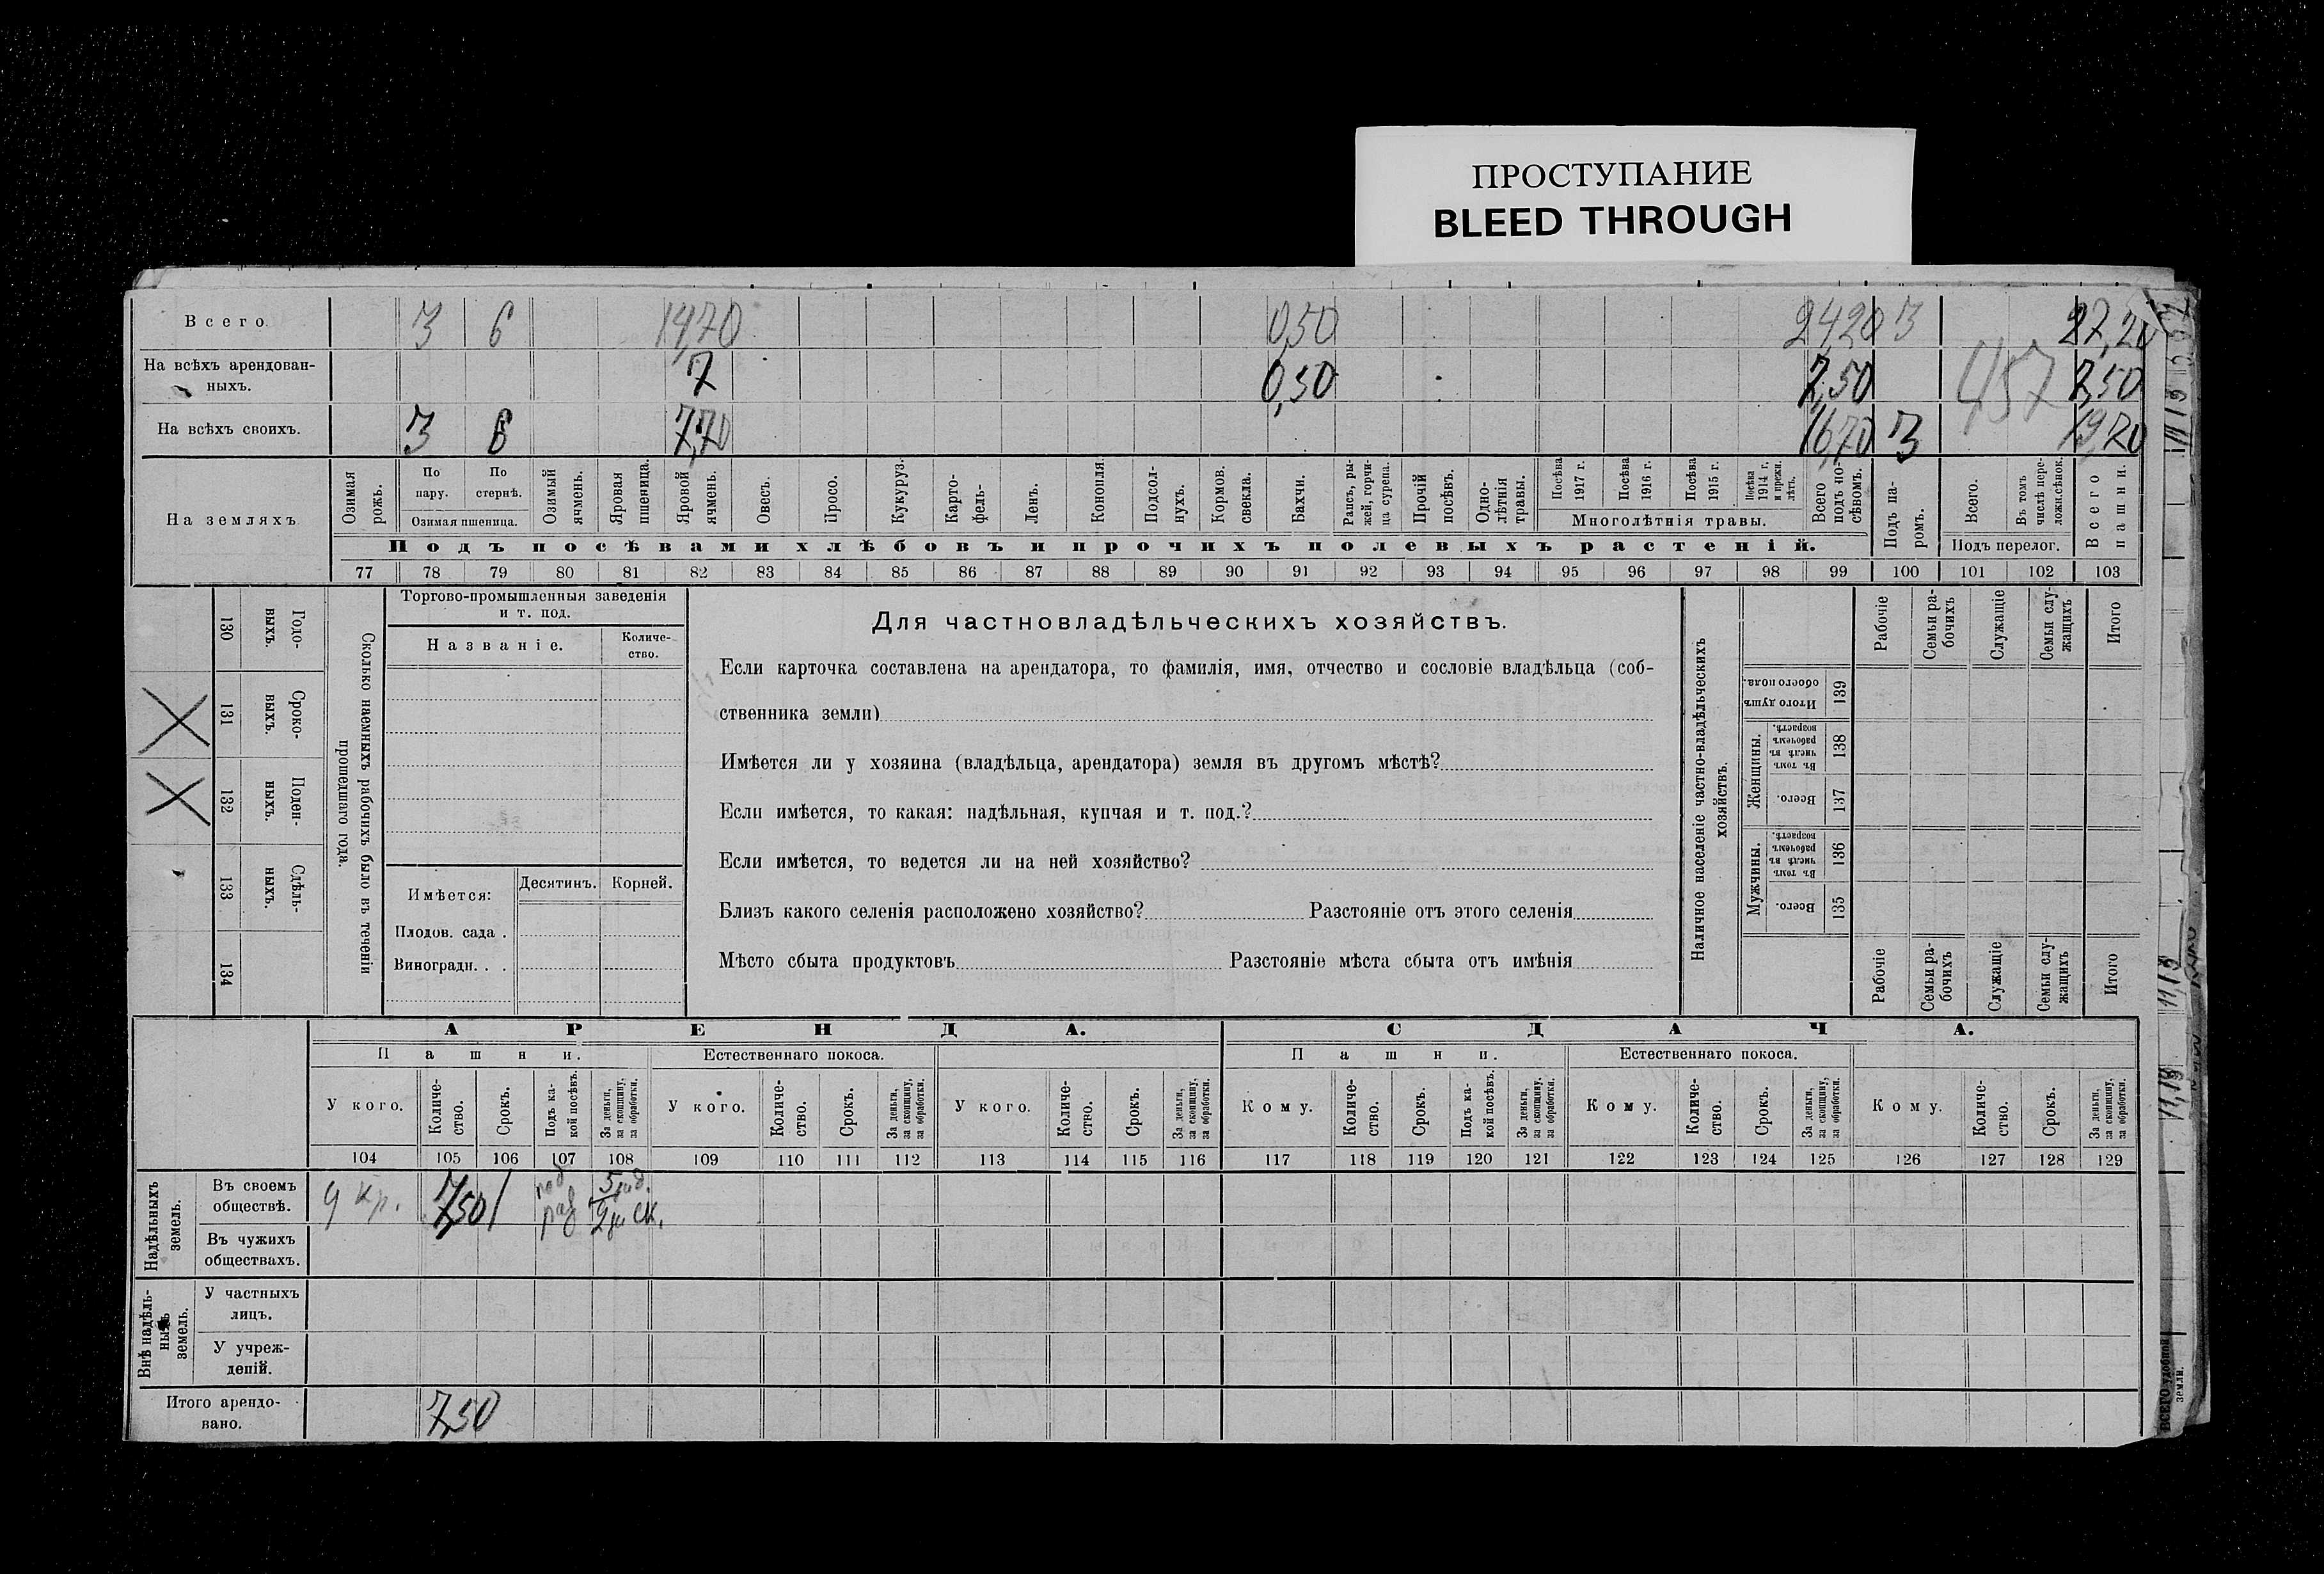 ПРОСТУПАНИЕ
BLEED THROUGH
Всего. 3 6 14,70 0,50 24,20 3 27,20
На всѣхъ арендован-
ныхъ. 7 0,50 7,50 457 7,50
На всѣхъ своихъ. 3 6 7,70 16,70 3 19,70
На земляхъ
Озимая рожь.
По пару.
По стернѣ.
Озимая пшеница.
Озимый ячмень.
Яровая пшеница.
Яровой ячмень.
Овесъ.
Просо.
Кукуруз.
Карто-
фель-
Ленъ.
Конопля.
Подсол-
нухъ.
Кормов.
свекла.
Бахчи.
Рапсъ, ры-
жей, горчи-
ца сурепа.
Прочій
посѣвъ.
Одно-
лѣтнія
травы.
Посѣва
1917 г.
Посѣва
1916 г.
Посѣва
1915 г.
Посѣва
1914 г.
и прежн.
лѣтъ.
Многолѣтнія травы.
Всего
подъ по-
сѣвомъ.
Подъ па-
ромъ.
Всего.
Въ томъ
числѣ пере-
ложн.сѣнок.
Подъ перелог.
Всего
пашни.
Подъ посѣвами хлѣбовъ и прочихъ полевыхъ растеній.
77 78 79 80 81 82 83 84 85 86 87 88 89 90 91 92 93 94 95 96 97 98 99 100 101 102 103
130 Годо-
ныхъ.
131 Сроко-
ныхъ.
132 Поден-
ныхъ.
133 Сдѣль-
ныхъ.
134
Сколько наемныхъ рабочихъ было въ теченіи
прошедшаго года.
Торгово-промышленныя заведенія
и т. под.
Названіе.
Количе-
ство.
Имѣется:
Десятинъ. Корней.
Плодов. сада .
Виноградн. . .
Для частновладѣльческихъ хозяйствъ.
Если карточка составлена на арендатора, то фамилія, имя, отчество и сословіе владѣльца (соб-
ственника земли)
Имѣется ли у хозяина (владѣльца, арендатора) земля въ другомъ мѣстѣ?
Если имѣется, то какая: надѣльная, купчая и т. под.?
Если имѣется, то ведется ли на ней хозяйство?
Близъ какого селенія расположено хозяйство? Разстояніе отъ этого селенія
Мѣсто сбыта продуктовъ Разстояніе мѣста сбыта отъ имѣнія
Наличное населеніе частно-владѣльческихъ
хозяйствъ.
Рабочіе
Семьи ра-
бочихъ
Служащіе
Семьи слу-
жащихъ
Итого
Итого душъ
обоего пола.
139
Женщины.
Въ томъ
числѣ въ
рабочемъ
возрастѣ.
138
Всего.
137
Мужчины.
Въ томъ
числѣ въ
рабочемъ
возрастѣ.
136
Всего.
135
Рабочіе
Семьи ра-
бочихъ
Служащіе
Семьи слу-
жащихъ
Итого
АРЕНДА. СДАЧА.
Пашни. Естественнаго покоса. Пашни. Естественнаго покоса.
У кого.
Количе-
ство.
Срокъ.
Подъ ка-
кой посѣвъ.
За деньги,
за скопщину,
за обработки.
У кого.
Количе-
ство.
Срокъ.
За деньги,
за скопщину,
за обработки.
У кого.
Количе-
ство.
Срокъ.
За деньги,
за скопщину,
за обработки.
Кому.
Количе-
ство.
Срокъ.
Подъ ка-
кой посѣвъ.
За деньги,
за скопщину,
за обработки.
Кому.
Количе-
ство.
Срокъ.
За деньги,
за скопщину,
за обработки.
Кому.
Количе-
ство.
Срокъ.
За деньги,
за скопщину,
за обработки.
104 105 106 107 108 109 110 111 112 113 114 115 116 117 118 119 120 121 122 123 124 125 126 127 128 129
Надѣльныхъ
земель.
Въ своемъ
обществѣ. кр. 7,50 1
Въ чужихъ
обществахъ.
Внѣ надѣль-
ныхъ
земель.
У частныхъ
лицъ.
У учреж-
деній.
Итого арендо-
вано. 7,50
ВСЕГО удобной
земли.